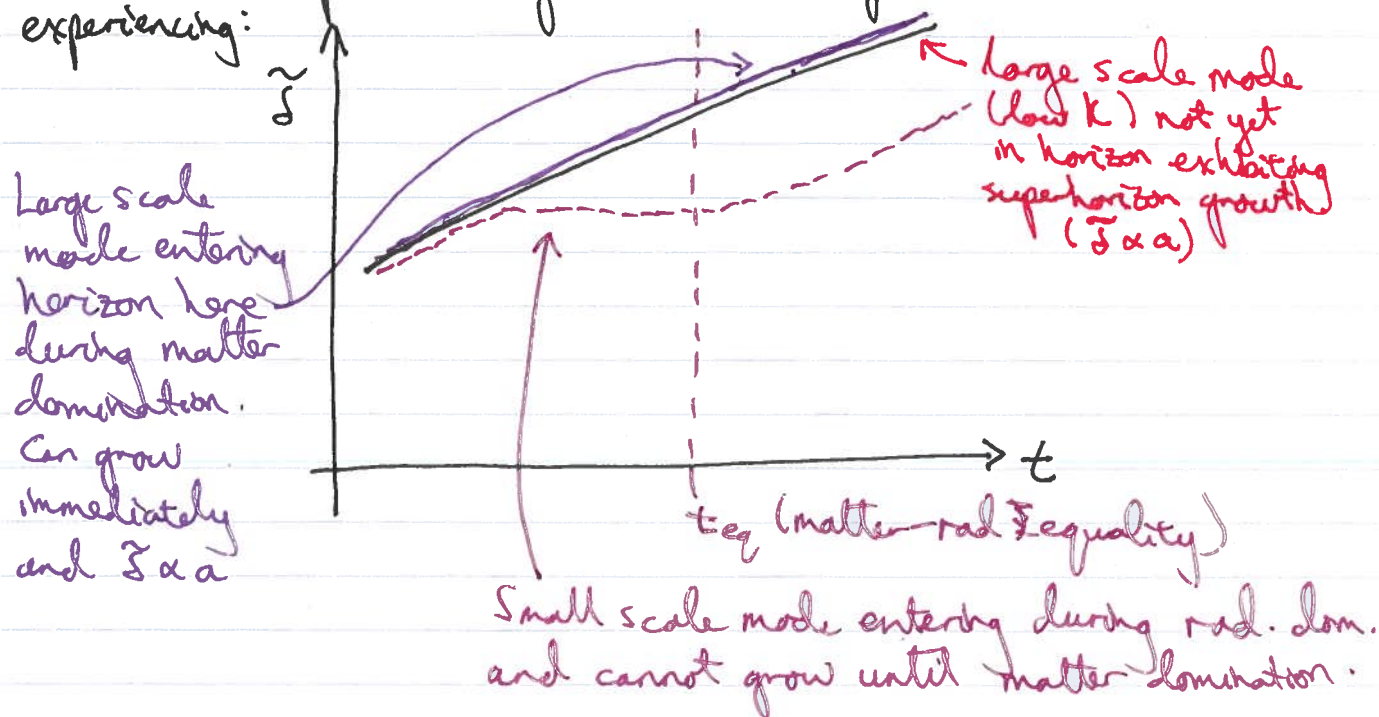 experiencing:
δ̃
Large scale
mode entering
horizon here
during matter
domination.
Can grow
immediately
and δ̃ ∝ a
Large scale mode
(low K) not yet
in horizon exhbiting
superhorizon growth
(δ̃ ∝ a)
t
teq (matter-rad equality)
Small scale mode entering during rad. dom.
and cannot grow until matter domination.